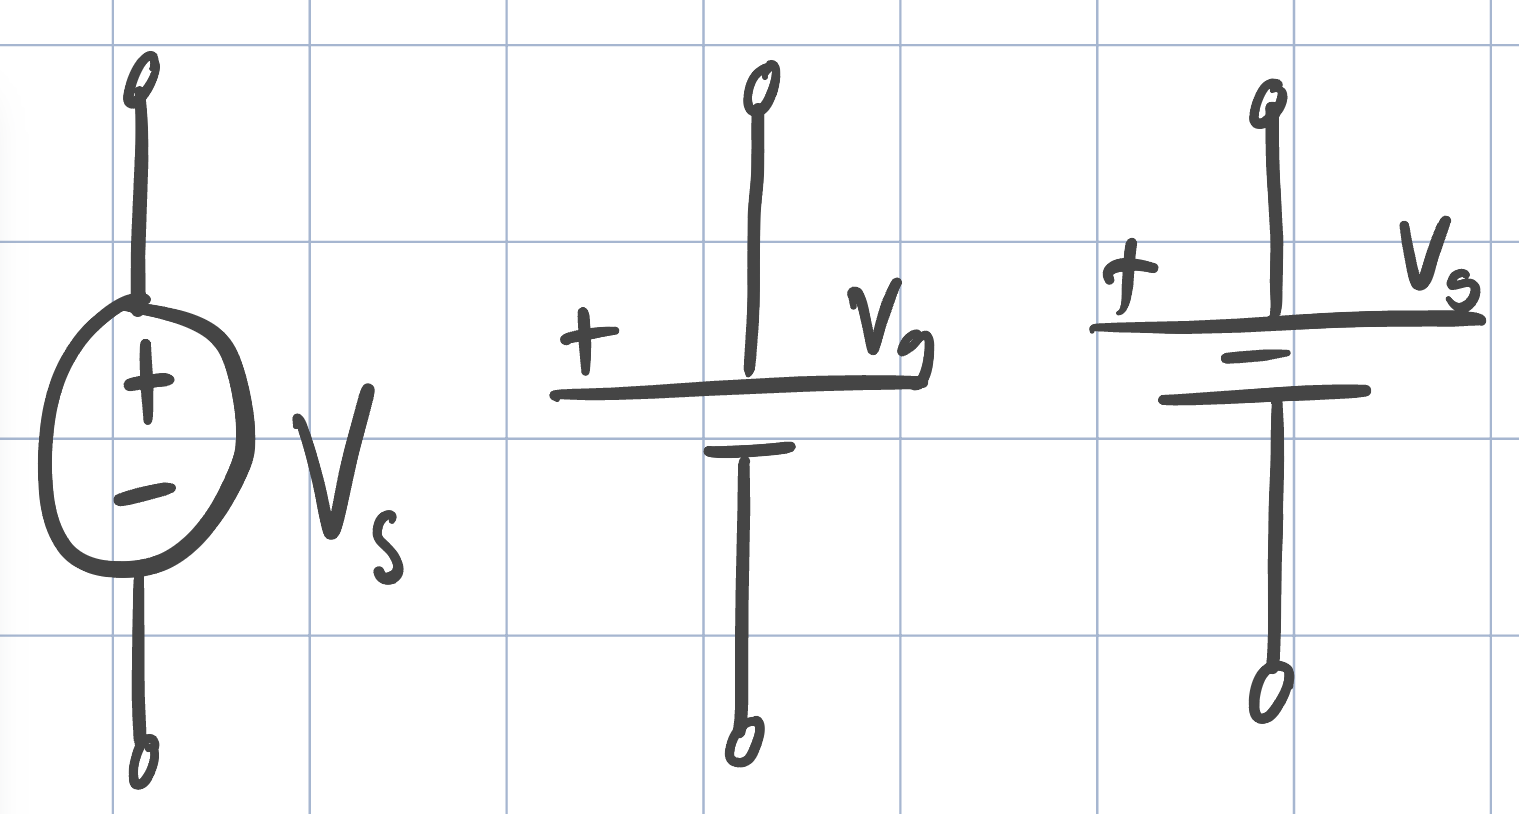 +
-
Vs
+
Vg
+
Vs